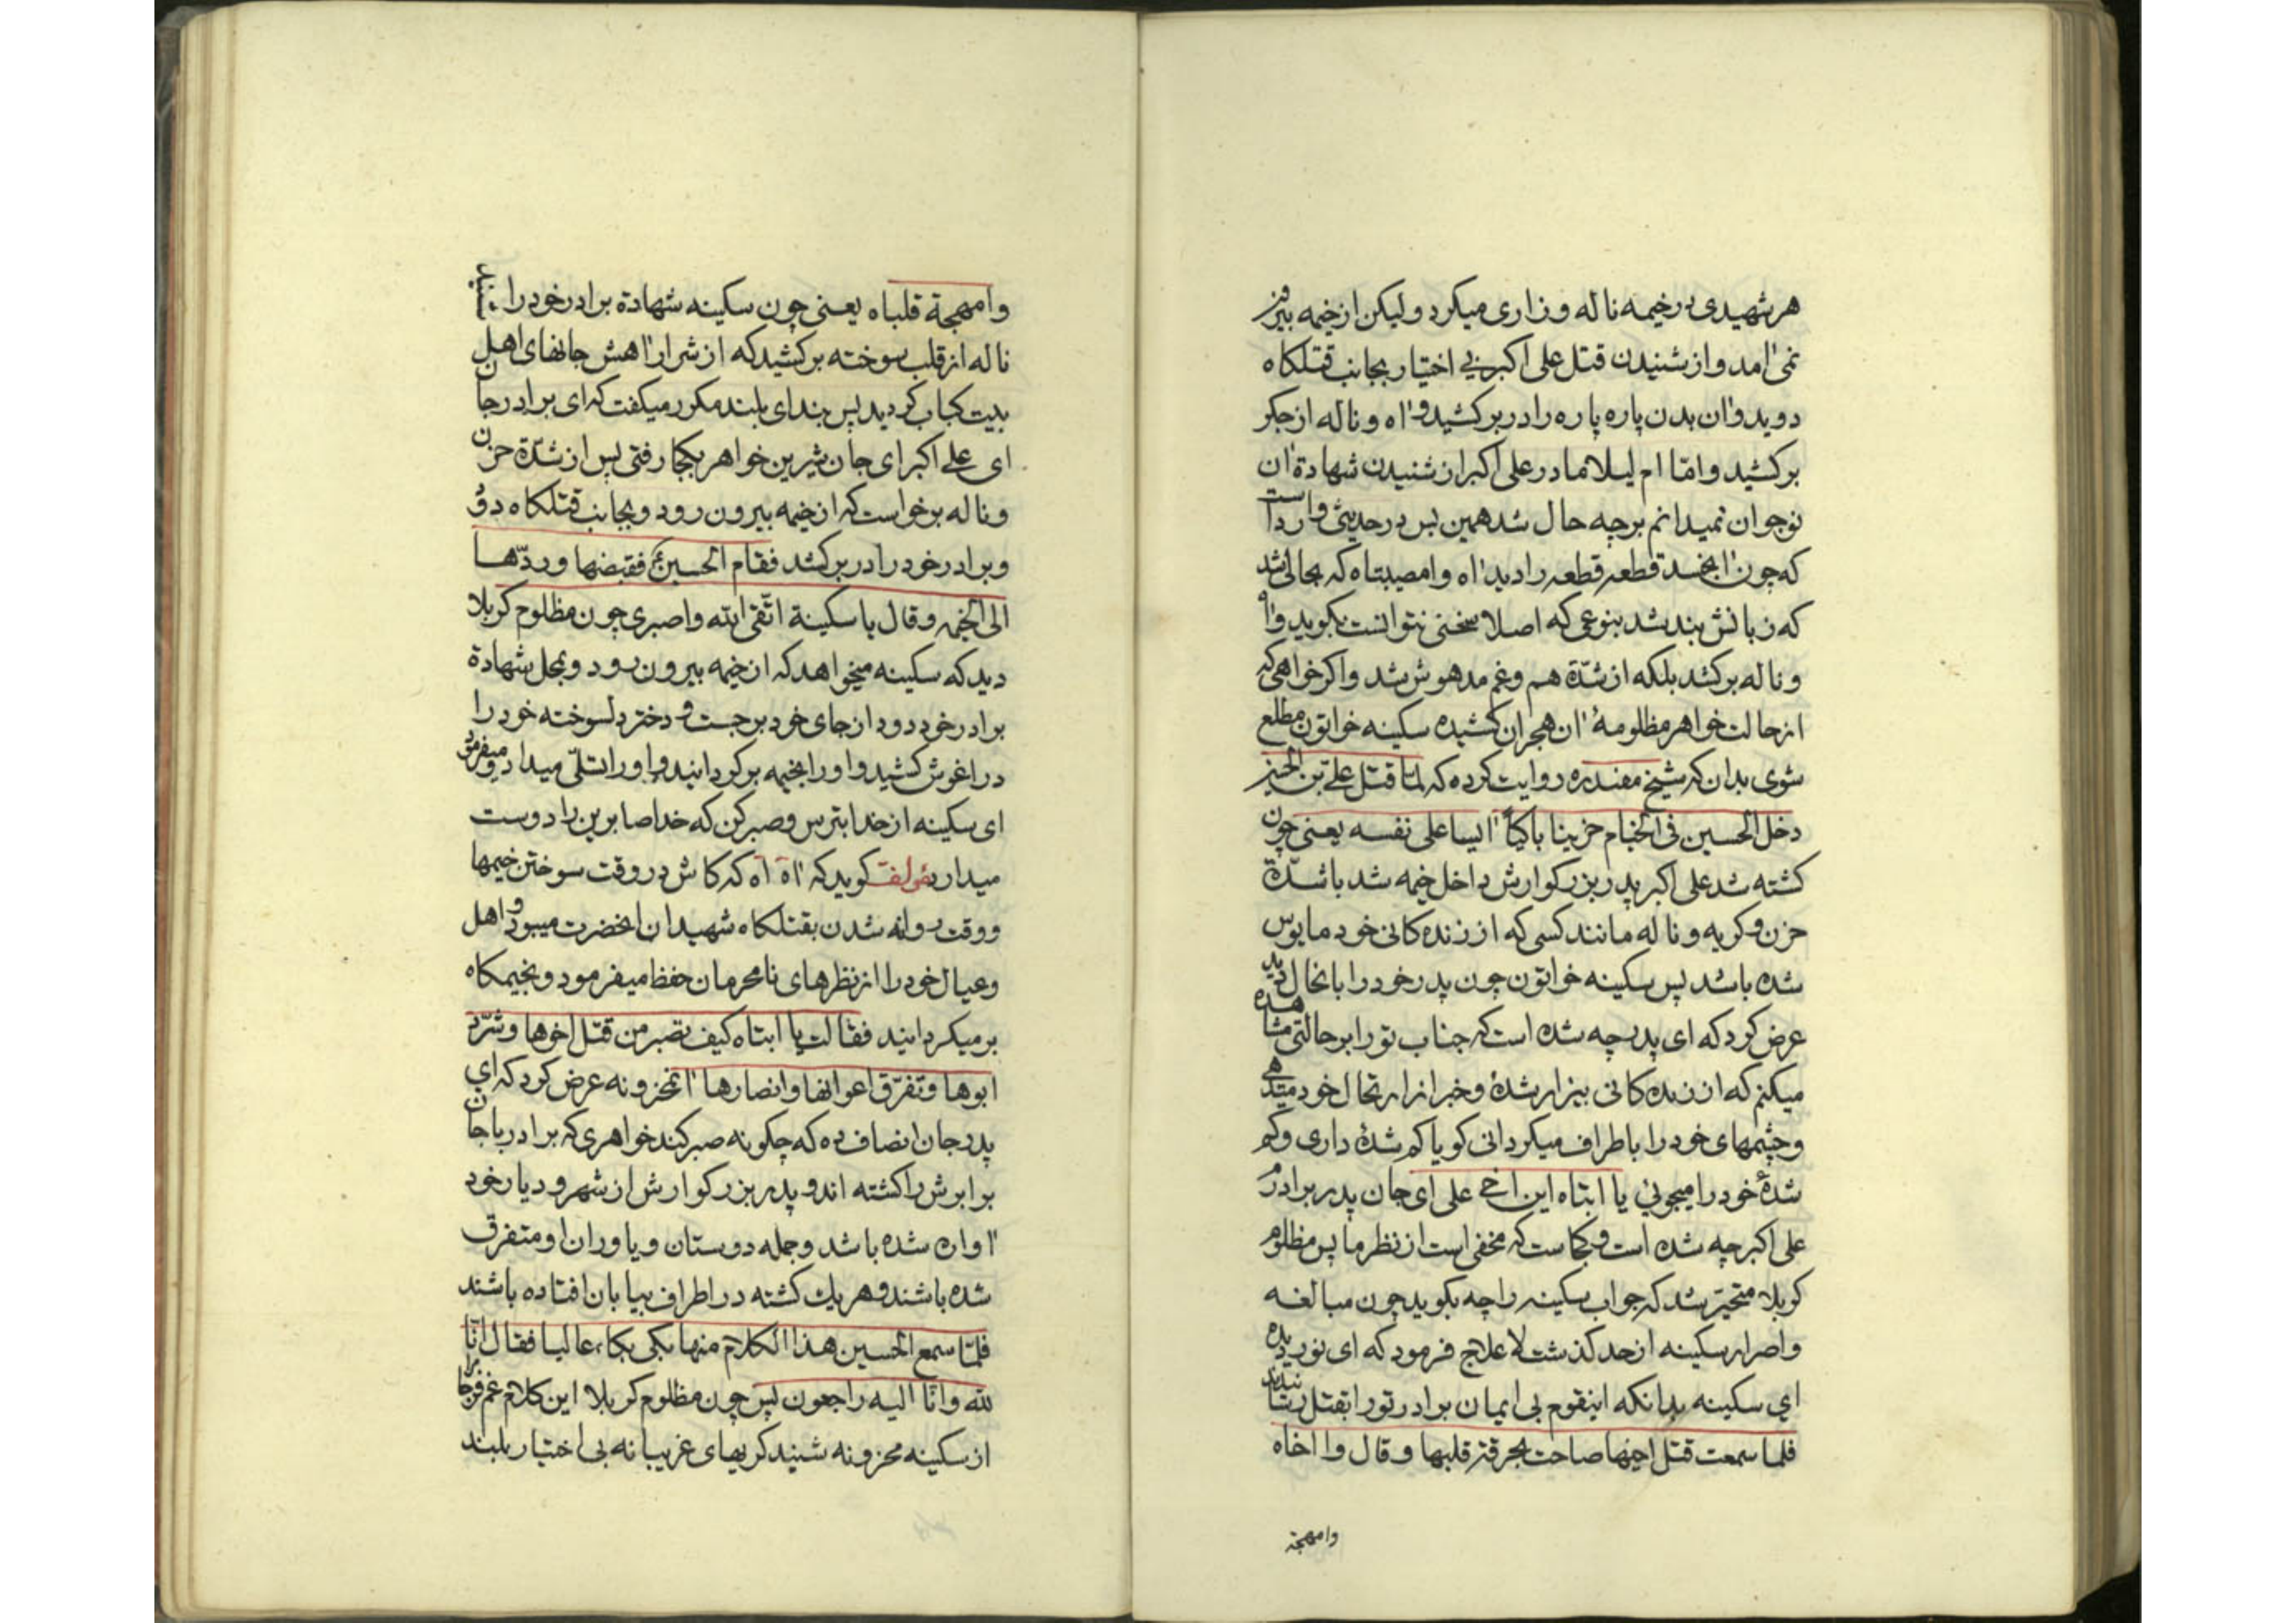 هر شهیدی در خیمه ناله و زاری میکرد ولیکن از خیمه بیرون
نمی آمد و از شنیدن قتل علی اکبر بی اختیار بجانب قتلکاه
دوید و آن بدن پاره پاره را در بر کشید و آه و ناله از جکر
برکشید و امّا ام لیلا مادر علی اکبر از شنیدن شهادة آن
نوجوان نمیدانم بر چه حال شد همین بس در حدیثی وارد است
که چون آنجسد قطعه قطعه را دید آه وامصیبتاه که بحالی شد
که زبانش بند شد بنوعی که اصلا سخنی نتوانست بکوید و آه
و ناله برکشد بلکه از شدّة هم و غم مدهوش شد و اکر خواهی که
از حالت خواهر مظلومهٔ آن هجران کشیده سکینه خواتون مطلع
شوی بدان که شیخ مفید ره روایت کرده که لما قتل علی بن الحسین
دخل الحسین فی الخیام حزینا باکیاً آیسا علی نفسه یعنی چون
کشته شد علی اکبر پدر بزرکوارش داخل خیمه شد با شدّة
حزن و کریه و ناله مانند کسی که از زنده کانی خود مایوس
شده باشد پس سکینه خواتون چون پدر خود را بانحال دید
عرض کرد که ای پدر چه شده است که جناب تو را بر حالتی مشاهده
میکنم که از زنده کانی بیزار شدهٔ و خبر از ارتحال خود میدهی
و چشمهای خود را باطراف میکردانی کویا کم شدهٔ داری و کم
شدهٔ خود را میجوئی یا ابتاه این اخی علی ای جان پدر برادرم
علی اکبر چه شده است و کجاست که مخفی است از نظر ما پس مظلوم
کربلا متحیّر شد که جواب سکینه را چه بکوید چون مبالغه
و اصرار سکینه از حد کذشت لا علاج فرمود که ای نور دیده
ای سکینه بدانکه اینقوم بی ایمان برادر تو را بقتل رسانیدند
فلما سمعت قتل اخیها صاحت بحرقة قلبها و قال وا اخاه
وامهجة
وامهجة قلباه یعنی چون سکینه شهادة برادر خود را شنید
ناله از قلب سوخته برکشید که از شرار آهش جانهای اهل
بیت کباب کردید پس بندای بلند مکرر میکفت که ای برادر جان
ای علی اکبر ای جان شیرین خواهر بکجا رفتی پس از شدّة حزن
و ناله برخواست که از خیمه بیرون رود و بجانب قتلکاه دود
و برادر خود را در بر کشد فقام الحسین ع فقبضها و ردّها
الی الخیمه و قال یا سکینة اتّقی الله واصبری چون مظلوم کربلا
دید که سکینه میخواهد که از خیمه بیرون رود و بمحل شهادة
برادر خود دود از جای خود برجست و دختر دلسوخته خود را
در اغوش کشید و او را بخیمه برکردانید و او را تسلّی میداد و میفرمود
ای سکینه از خدا بترس و صبر کن که خدا صابرین را دوست
میدارد مؤلف کوید که آه آه که کاش در وقت سوختن خیمها
و وقت روانه شدن بقتلکاه شهیدان انحضرت میبود و اهل
و عیال خود را از نظرهای نامحرمان حفظ میفرمود و بخیمکاه
بر میکردانید فقالت یا ابتاه کیف تصبر من قتل اخوها و شرّد
ابوها و تفرّق اعوانها و انصارها آنمحزونه عرض کرد که ای
پدر جان انصاف ده که چکونه صبر کند خواهری که برادر با جان
برابرش را کشته اند و پدر بزرکوارش از شهر و دیار خود
آواره شده باشد و جمله دوستان و یاوران او متفرق
شده باشند و هر یك کشته در اطراف بیابان افتاده باشند
فلمّا سمع الحسین هذا الکلام منها بکی بکاء عالیا فقال انّا
لله و انّا الیه راجعون پس چون مظلوم کربلا این کلام غم فرجام را
از سکینه محزونه شنید کریهای غریبانه بی اختیار بلند